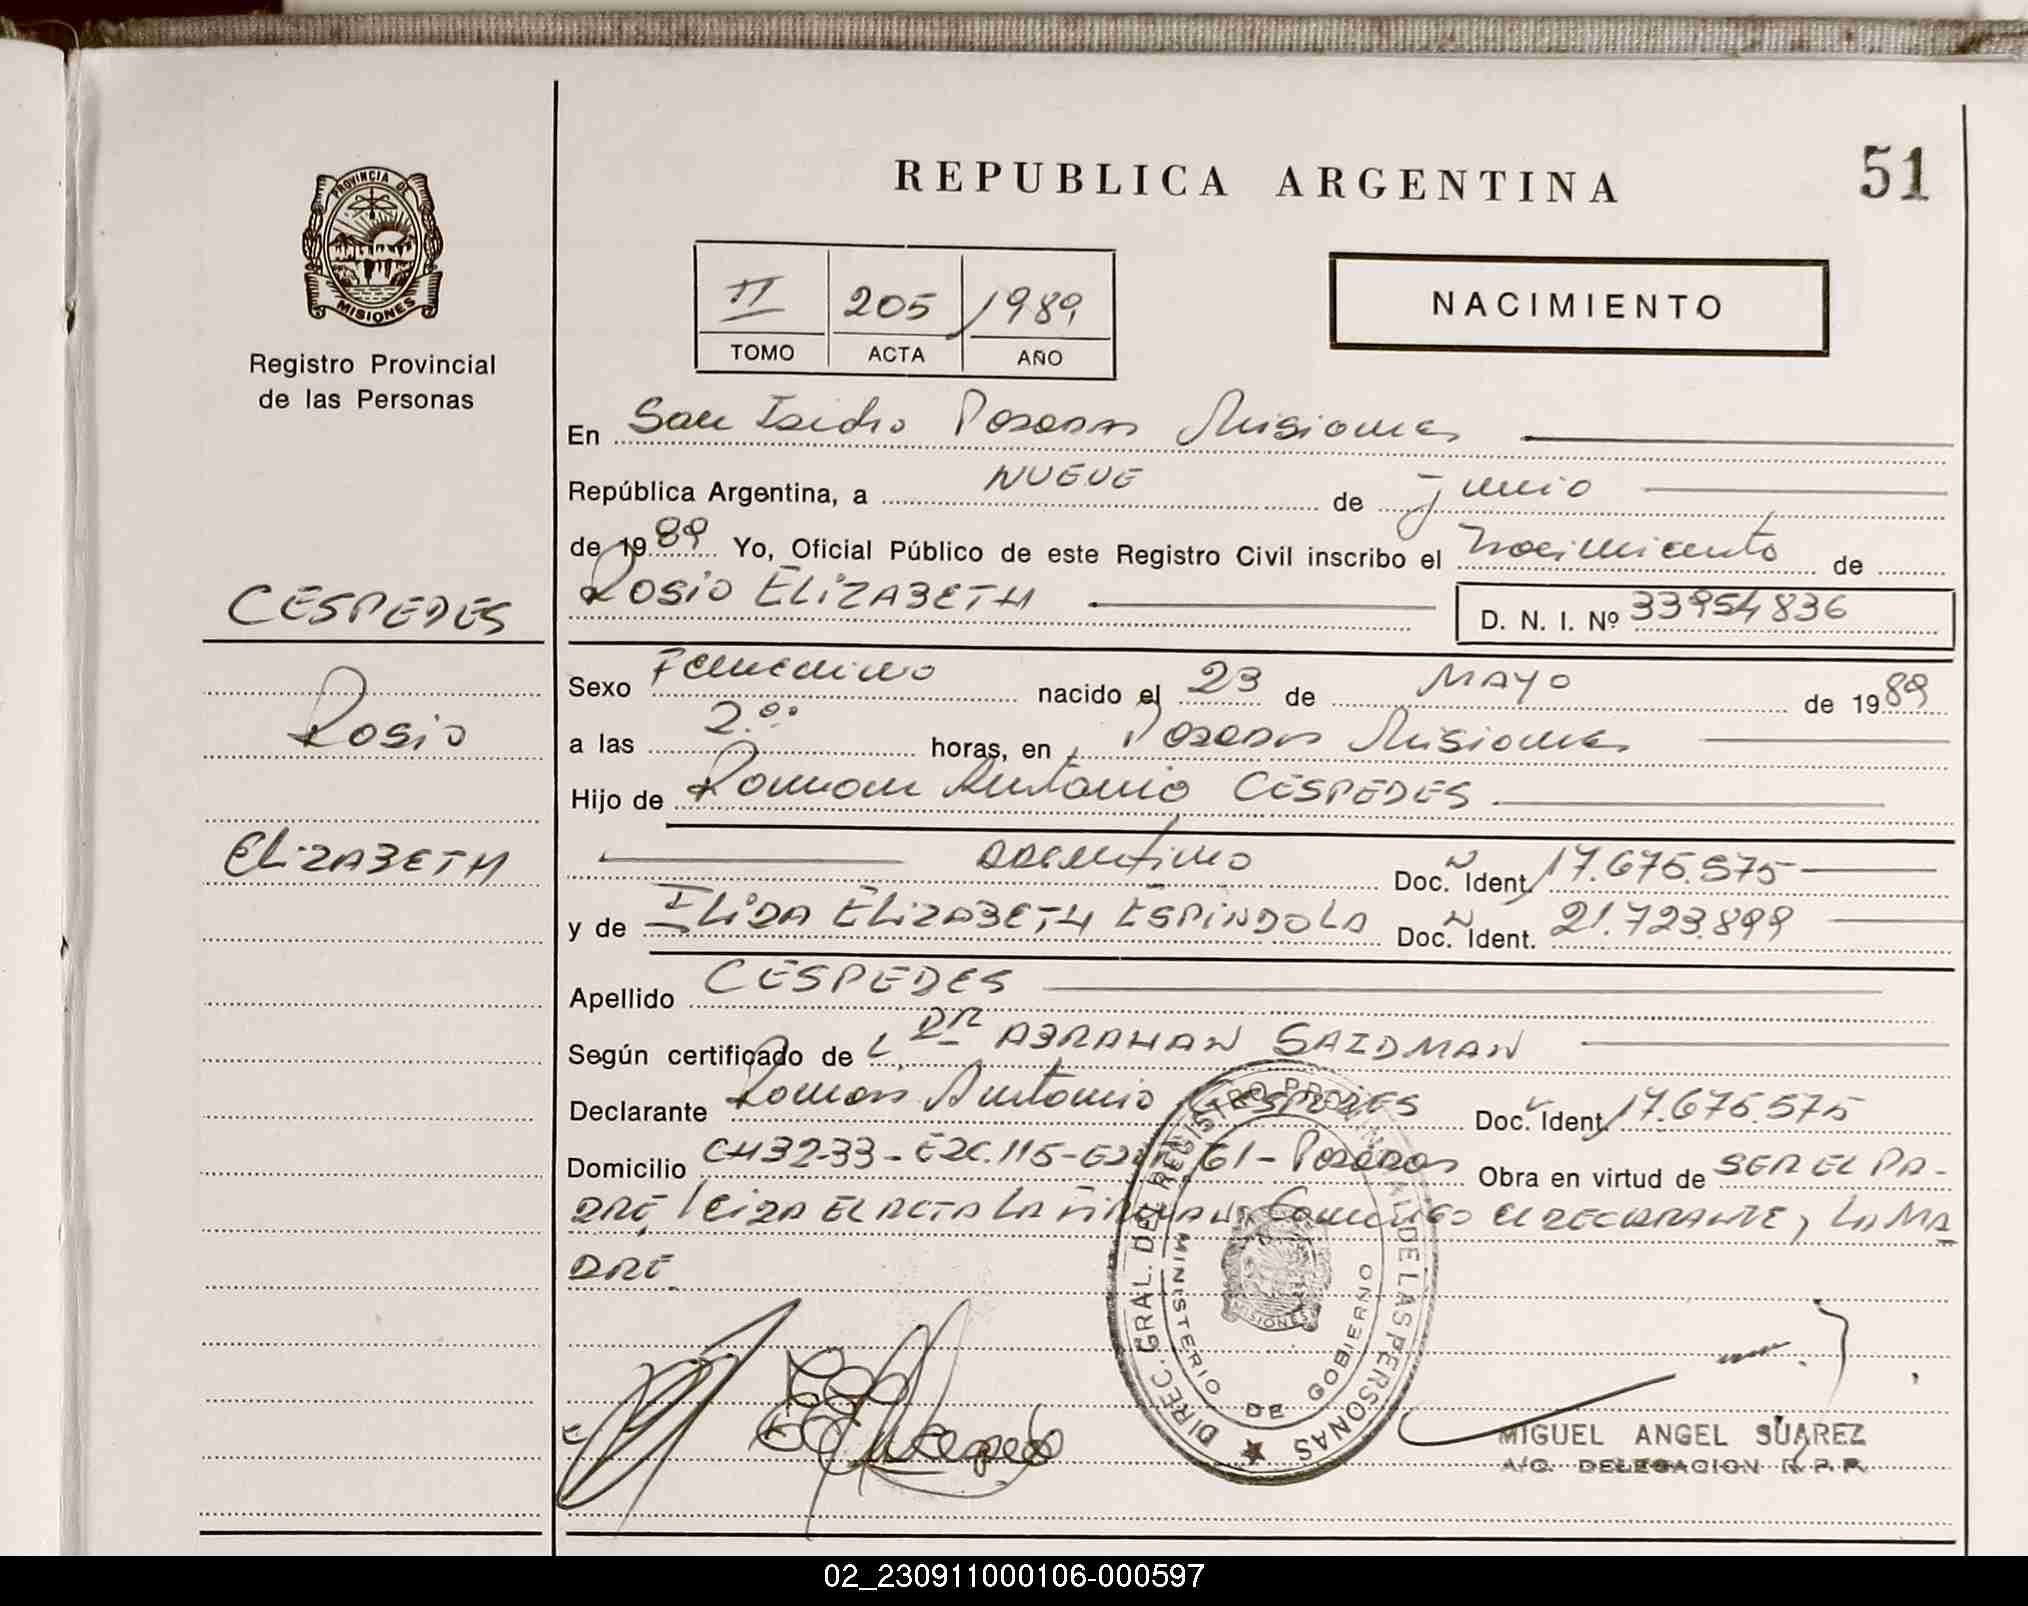 PROVINCIA DE
MISIONES
Registro Provincial
de las Personas
CESPEDES
Rosio
ELIZABETH
REPUBLICA ARGENTINA
51
II 205 1989
TOMO ACTA AÑO
NACIMIENTO
En San Isidro Posadas Misiones
República Argentina, a NUEVE de junio
de 1989 Yo, Oficial Público de este Registro Civil inscribo el nacimiento de
Rosio ELIZABETH D. N. I. Nº 33954836
Sexo Femenino nacido el 23 de MAYO de 1989
a las 2.00 horas, en Posadas Misiones
Hijo de Roman Antonio CESPEDES
argentino Doc. Ident. 17.675.575
y de ILIDA ELIZABETH ESPINDOLA Doc. Ident. 21.723.899
Apellido CESPEDES
Según certificado de DR ABRAHAN SAIDMAN
Declarante Roman Antonio CESPEDES Doc. Ident. 17.675.575
Domicilio CH32-33-ESC.115- 61-Posadas Obra en virtud de SER EL PA-
DRE, leida EL ACTA LA FIRMAN Conmigo el DECLARANTE, y LA MA
DRE
DIREC. GRAL. DEL REGISTRO PROVINCIAL DE LAS PERSONAS
MINISTERIO DE GOBIERNO
MISIONES
MIGUEL ANGEL SUAREZ
A/C. DELEGACION R.P.P.
02_230911000106-000597